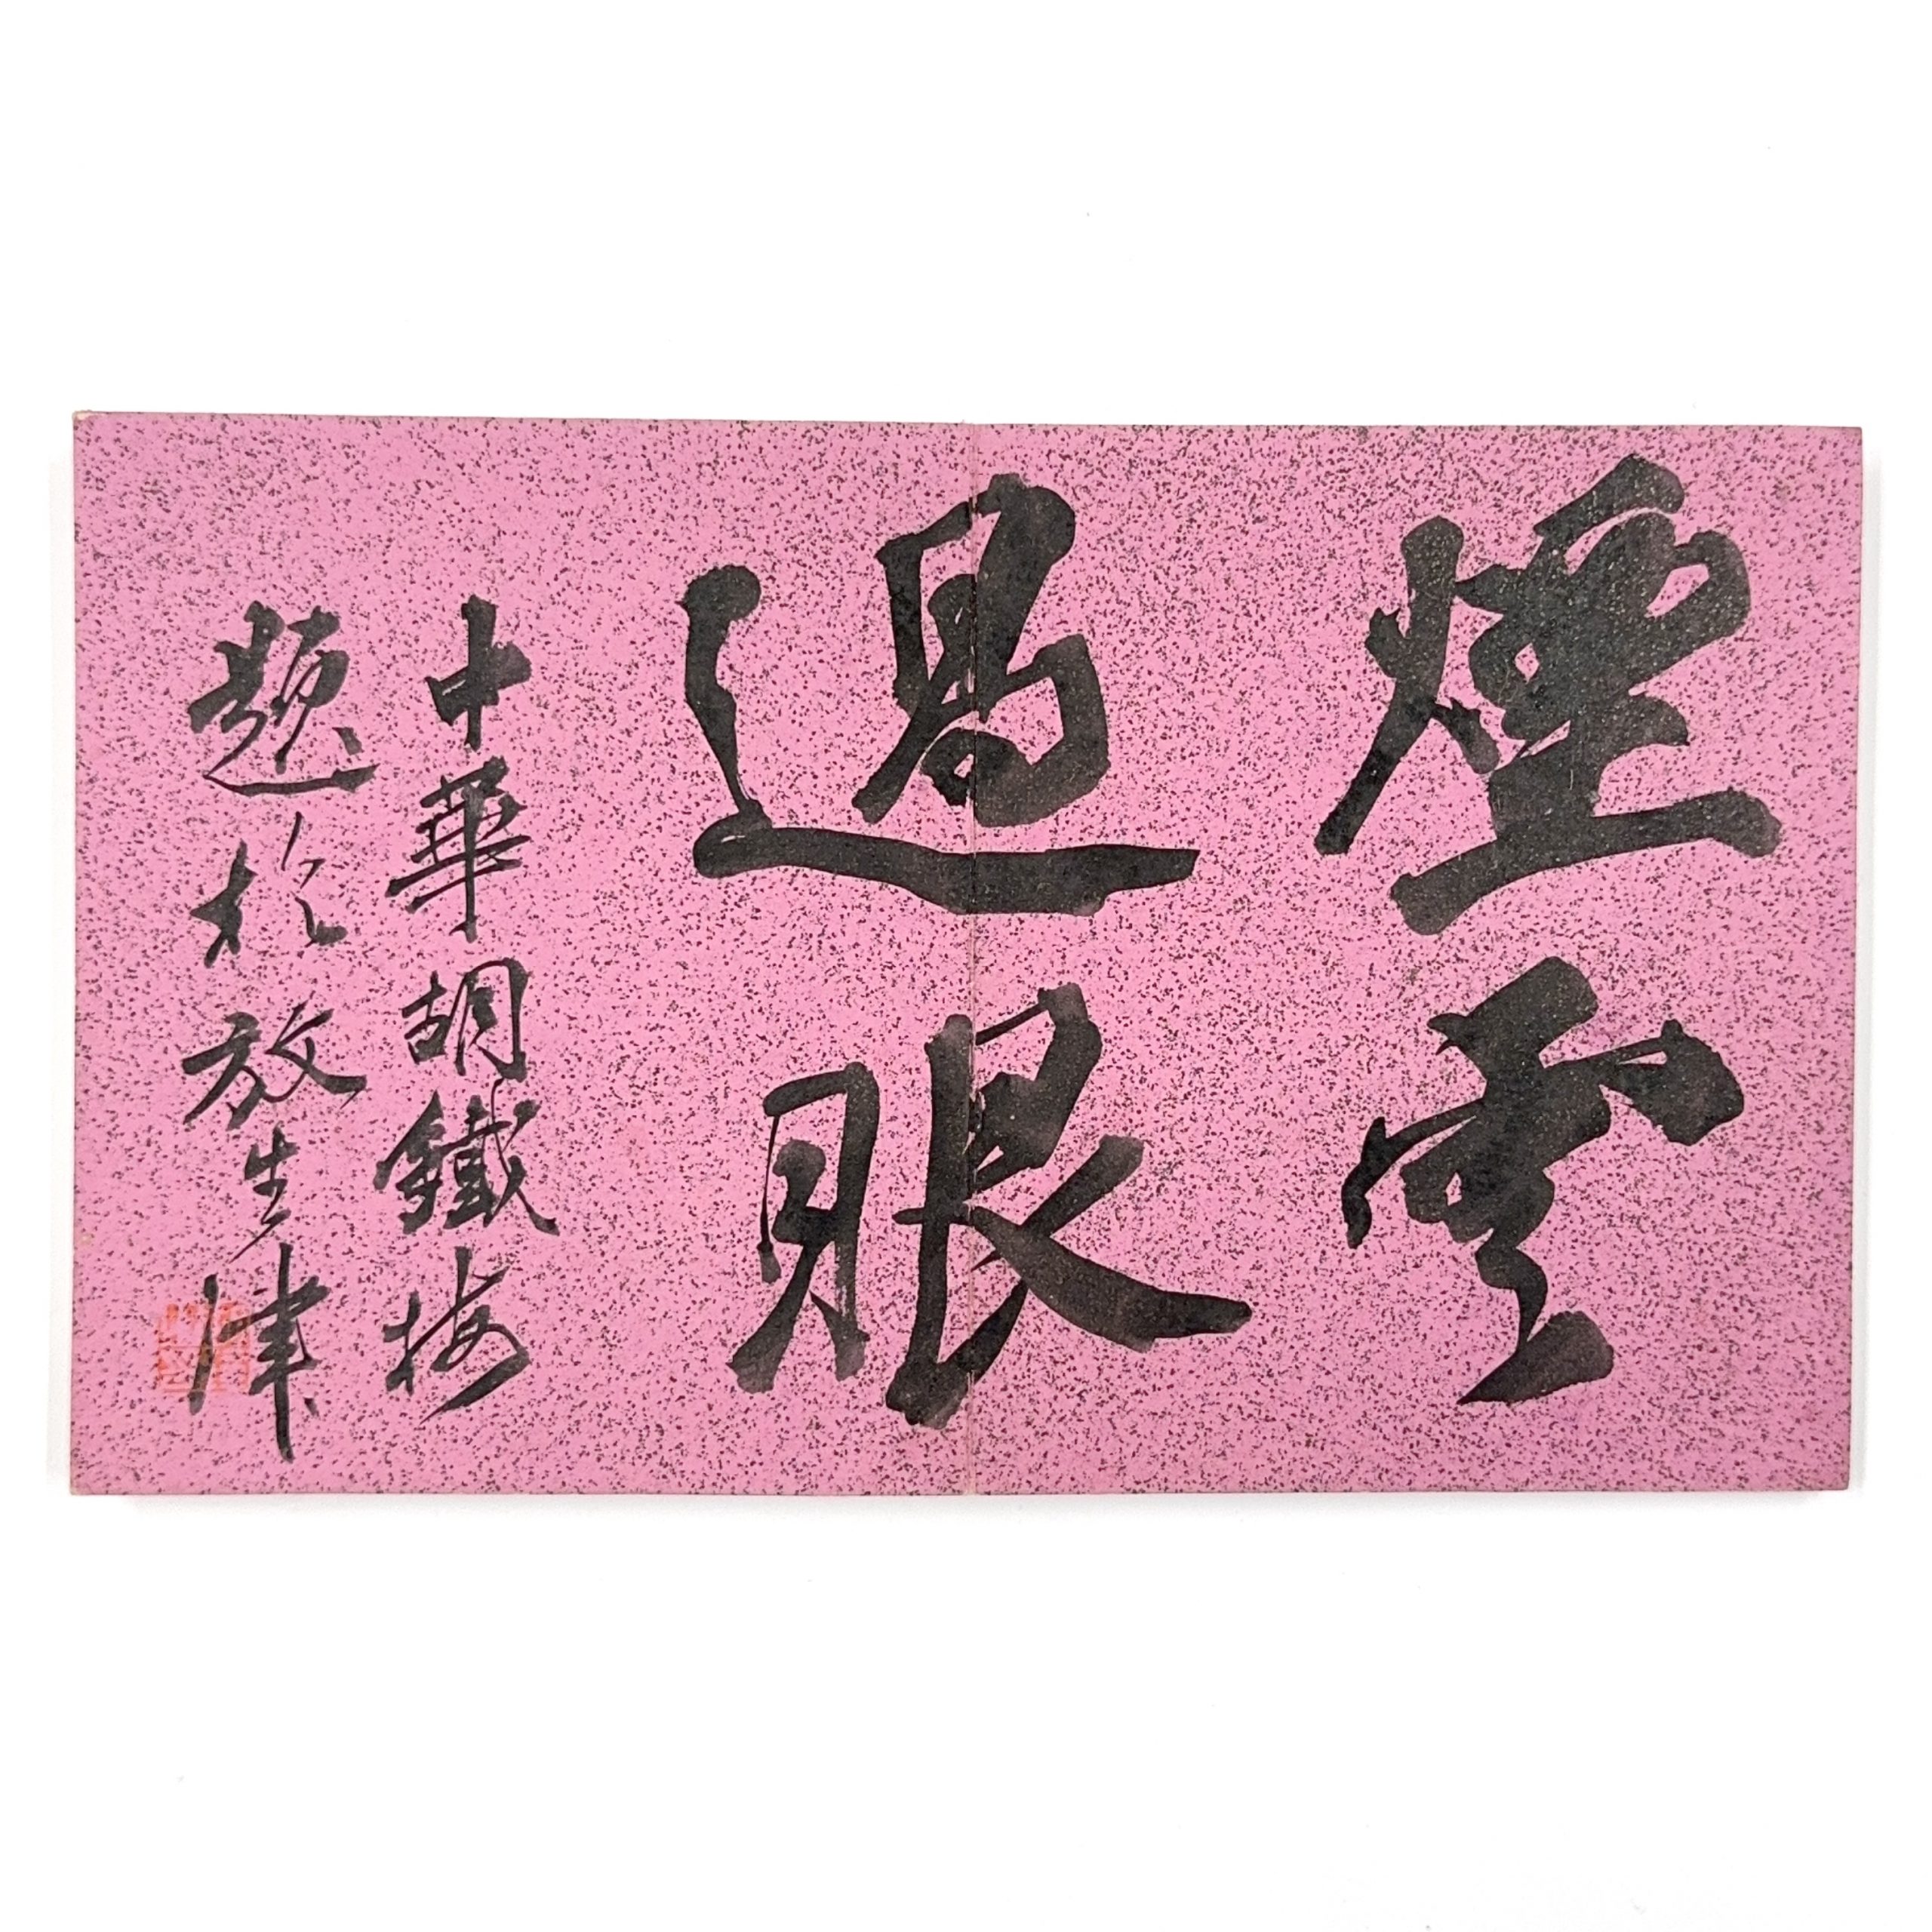 煙雲
過眼
中華胡鐵梅
題於放生津